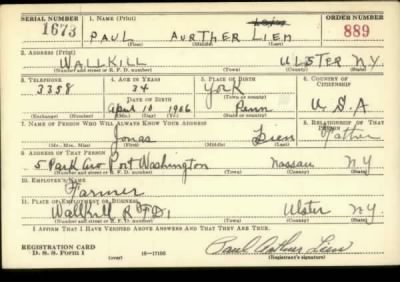 SERIAL NUMBER 1. NAME (Print) ORDER NUMBER
1673 PAUL AURTHER LIEN 889
(First) (Middle) (Last)
2. ADDRESS (Print)
WALLKILL ULSTER N.Y.
(Number and street or R. F. D. number) (Town) (County) (State)
3. TELEPHONE 4. AGE IN YEARS 5. PLACE OF BIRTH 6. COUNTRY OF CITIZENSHIP
3358 34 York
DATE OF BIRTH (Town or county)
April 10 1906 Penn U.S.A
(Exchange) (Number) (Mo.) (Day) (Yr.) (State or country)
7. NAME OF PERSON WHO WILL ALWAYS KNOW YOUR ADDRESS 8. RELATIONSHIP OF THAT PERSON
Jonas Lien Father
(Mr., Mrs., Miss) (First) (Middle) (Last)
9. ADDRESS OF THAT PERSON
5 Park Ave Port Washington Nassau NY
(Number and street or R. F. D. number) (Town) (County) (State)
10. EMPLOYER'S NAME
Farmer
11. PLACE OF EMPLOYMENT OR BUSINESS
Wallkill R.F.D.1 Ulster NY.
(Number and street or R. F. D. number) (Town) (County) (State)
I AFFIRM THAT I HAVE VERIFIED ABOVE ANSWERS AND THAT THEY ARE TRUE.
REGISTRATION CARD
D. S. S. Form 1 (over) 16—17105 Paul Arthur Lien
(Registrant's signature)